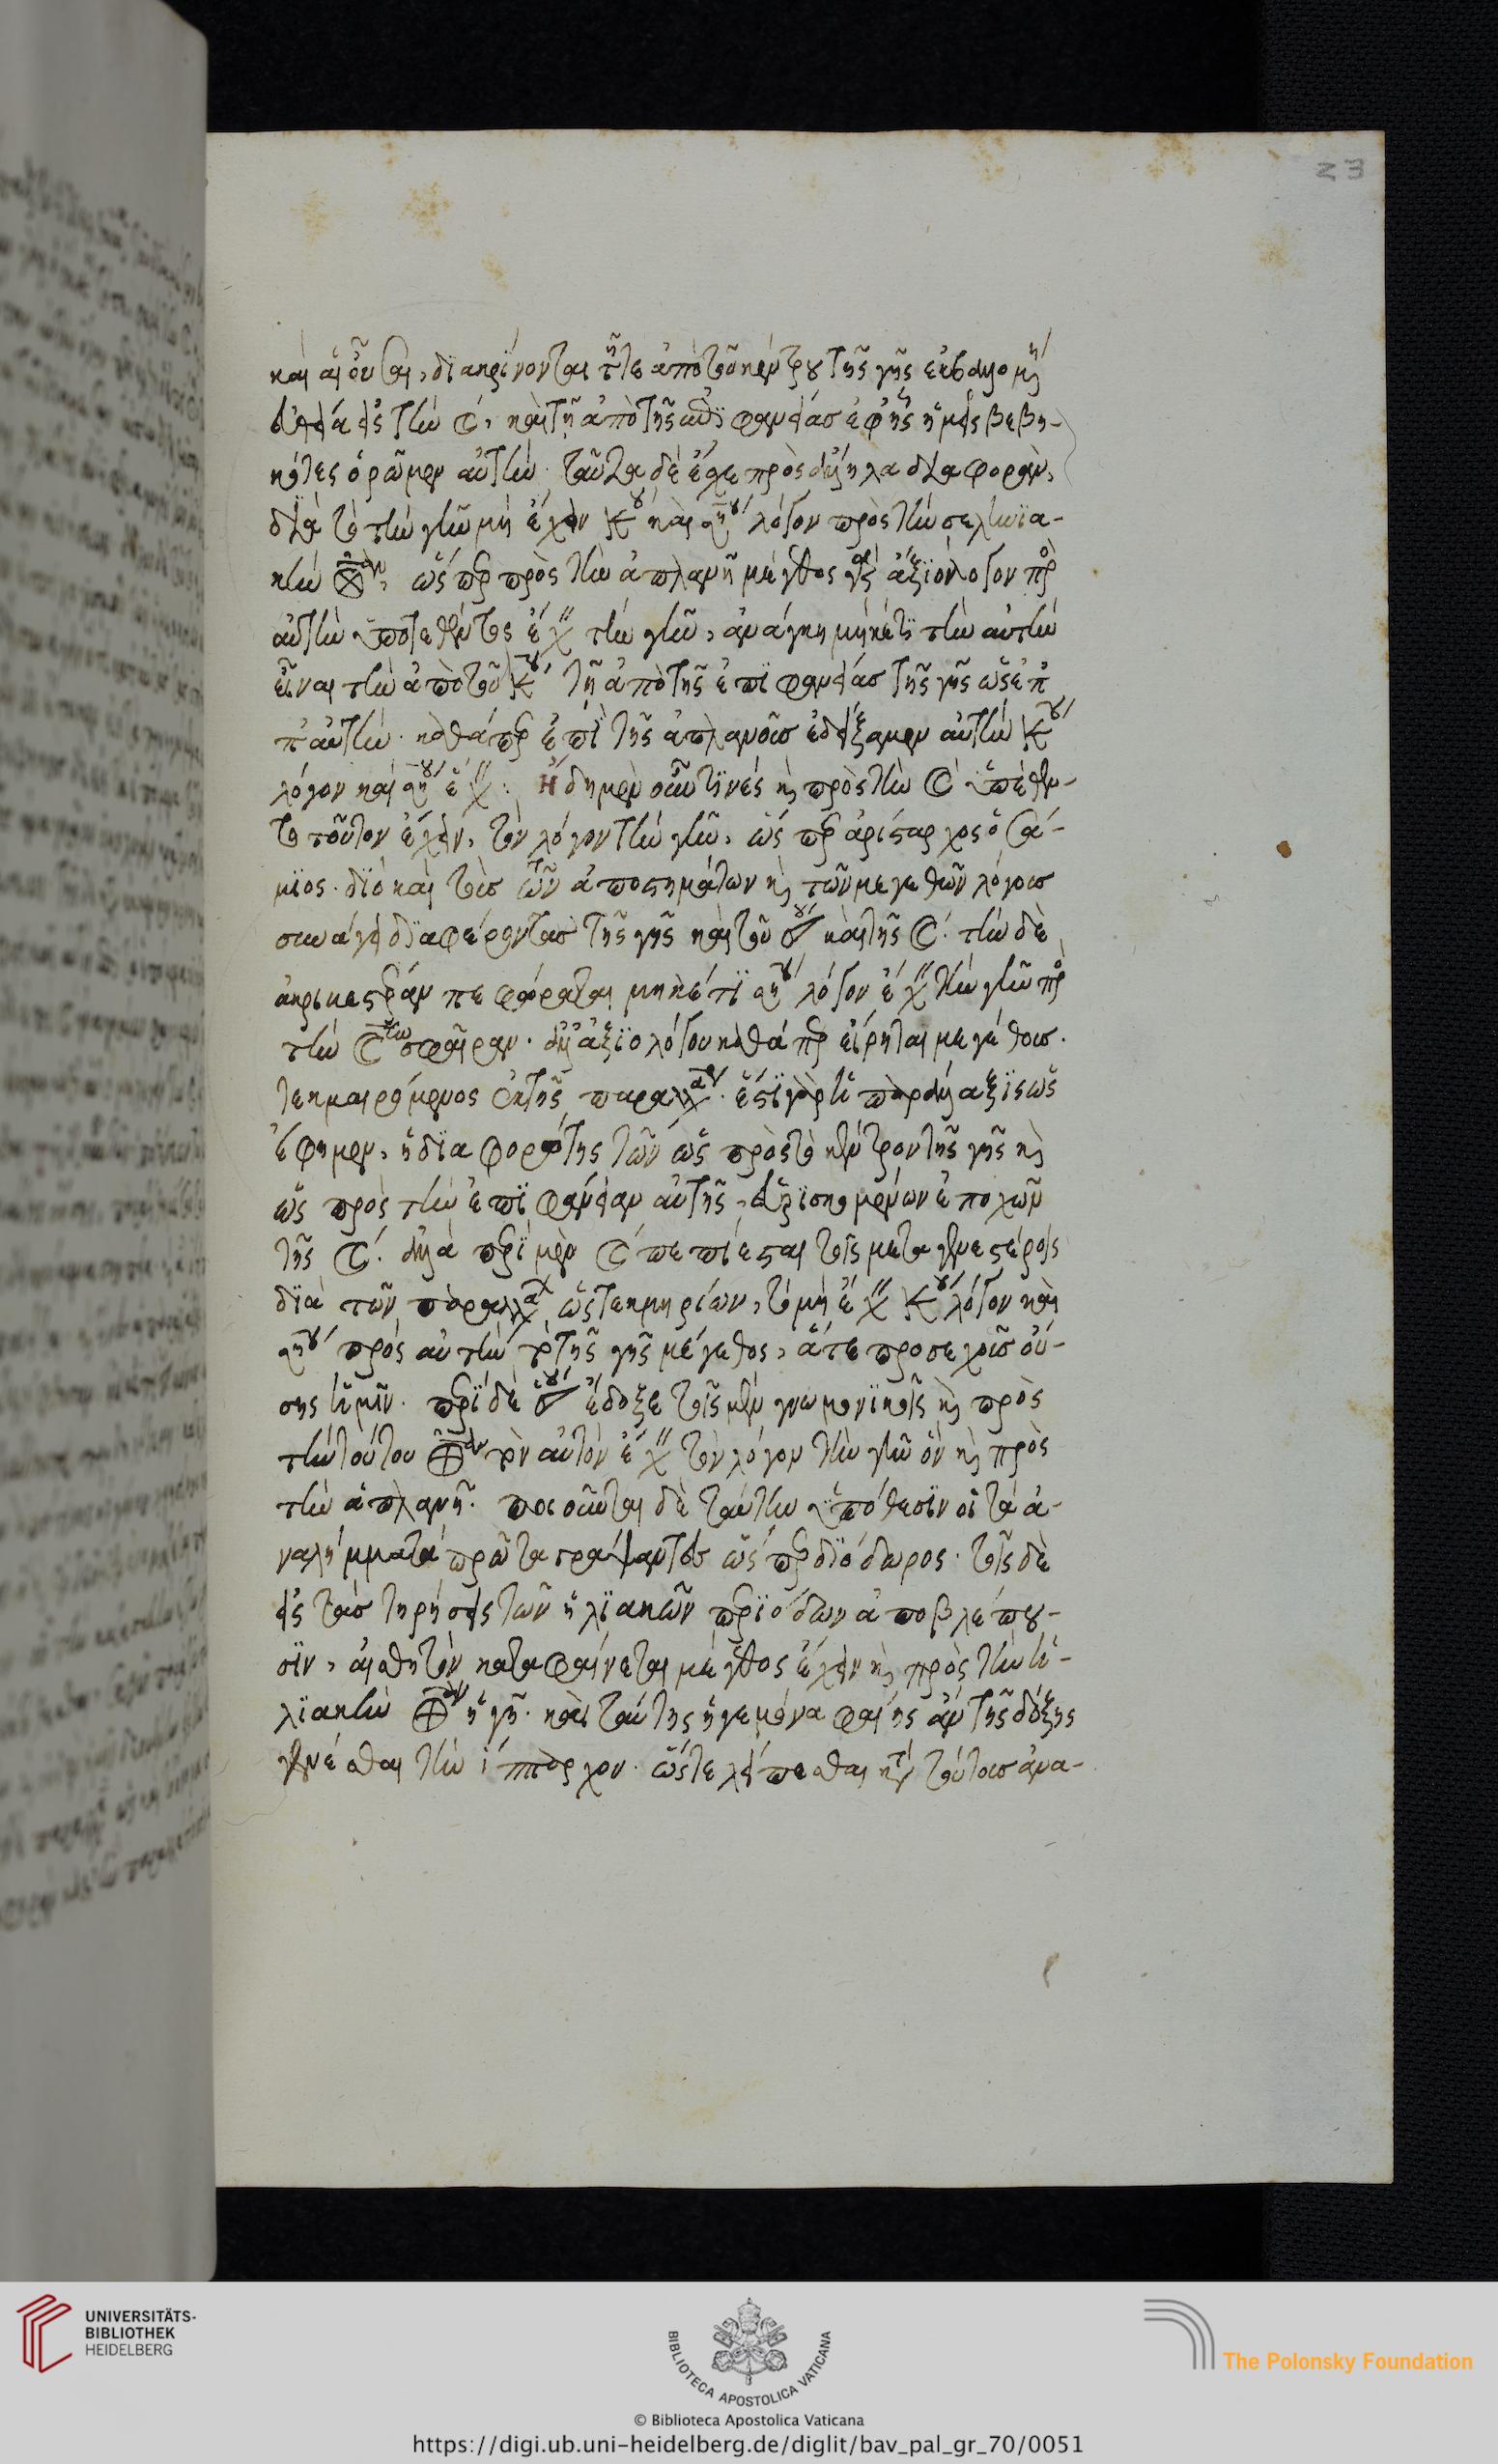 καὶ αἱ οὖσαι, διακρίνονται τῇ τε ἀπὸ τοῦ κέντρου τῆς γῆς ἐκβαλλομένη
εὐθεία εἰς τὴν ☾, καὶ τῇ ἀπὸ τῆς ἐπιφανείας ἐφ' ἧς ἡμεῖς βεβη-
κότες ὁρῶμεν αὐτήν. ταῦτα δὲ ἔχει πρὸς ἄλληλα διαφορὰν,
διὰ τὸ τὴν γῆν μὴ ἔχειν κέντρου καὶ σημείου λόγον πρὸς τὴν σεληνια-
κὴν σφαῖραν, ὥσπερ πρὸς τὴν ἀπλανῆ μέγεθος γὰρ ἀξιόλογον πρὸς
αὐτὴν ὑποτεθέντος ἔχειν τὴν γῆν, ἀνάγκη μηκέτι τὴν αὐτὴν
εἶναι τὴν ἀπὸ τοῦ κέντρου τῇ ἀπὸ τῆς ἐπιφανείας τῆς γῆς ὡς ἐπ
π' αὐτήν. καθάπερ ἐπὶ τῆς ἀπλανοῦς ἐδείξαμεν αὐτὴν κέντρου
λόγον καὶ σημείου ἔχειν. Ἤδη μὲν οὖν τινές καὶ πρὸς τὴν ☾ ὑπέθεν-
το τοῦτον ἔχειν, τὸν λόγον τὴν γῆν, ὥσπερ ἀρίσταρχος ὁ σά-
μιος. διὸ καὶ τοὺς τῶν ἀποστημάτων καὶ τῶν μεγεθῶν λόγους
συνάγει διαφέροντας τῆς γῆς καὶ τοῦ ἡλίου καὶ τῆς ☾. τὴν δὲ
πεφώραται μηκέτι σημείου λόγον ἔχειν τὴν γῆν πρὸς
τὴν ☾ σφαῖραν. ἀλλ' ἀξιολόγου καθάπερ εἴρηται μεγέθους.
τεκμαιρόμενος ἐκ τῆς παραλλάξεως. ἔστι γὰρ ἡ παράλλαξις ὡς
ἔφημεν, ἡ διαφορότης τῶν ὡς πρὸς τὸ κέντρον τῆς γῆς καὶ
ὡς πρὸς τὴν ἐπιφάνειαν αὐτῆς, εὑρισκομένων ἐποχῶν
τῆς ☾. ἀλλὰ περὶ μὲν ☾ πεπίεσται τοῖς μεταγενεστέροις
διὰ τῶν παραλλάξεων τεκμηρίων, τὸ μὴ ἔχειν κέντρου λόγον καὶ
σημείου πρὸς αὐτὴν τὸ τῆς γῆς μέγεθος, ἅτε προσεχοῦς οὔ-
σης ἡμῖν. περὶ δὲ ἡλίου ἔδοξε τοῖς μὲν γνωμονικοῖς καὶ πρὸς
τὴν τούτου σφαῖραν τὸν αὐτὸν ἔχειν τὸν λόγον τὴν γῆν ὃν καὶ πρὸς
τὴν ἀπλανῆ. ποιοῦνται δὲ ταύτην ὑπόθεσιν οἱ τὰ ἀ-
ναλήμματα πρῶτα γράψαντες ὥσπερ διόδωρος. τοῖς δὲ
εἰς τὰς τηρήσεις τῶν ἡλιακῶν περιόδων ἀποβλέπου-
σιν, αἰσθητὸν καταφαίνεται μέγεθος ἔχειν καὶ πρὸς τὴν ἡ-
λιακὴν σφαῖραν ἡ γῆ. καὶ ταύτης ἡγεμόνα φαίης ἂν τῆς δόξης
γενέσθαι τὸν ἵππαρχον. ὥστε λείπεσθαι κατὰ τούτους ἀνα-
23
UNIVERSITÄTS-
BIBLIOTHEK
HEIDELBERG
BIBLIOTECA APOSTOLICA VATICANA
The Polonsky Foundation
© Biblioteca Apostolica Vaticana
https://digi.ub.uni-heidelberg.de/diglit/bav_pal_gr_70/0051